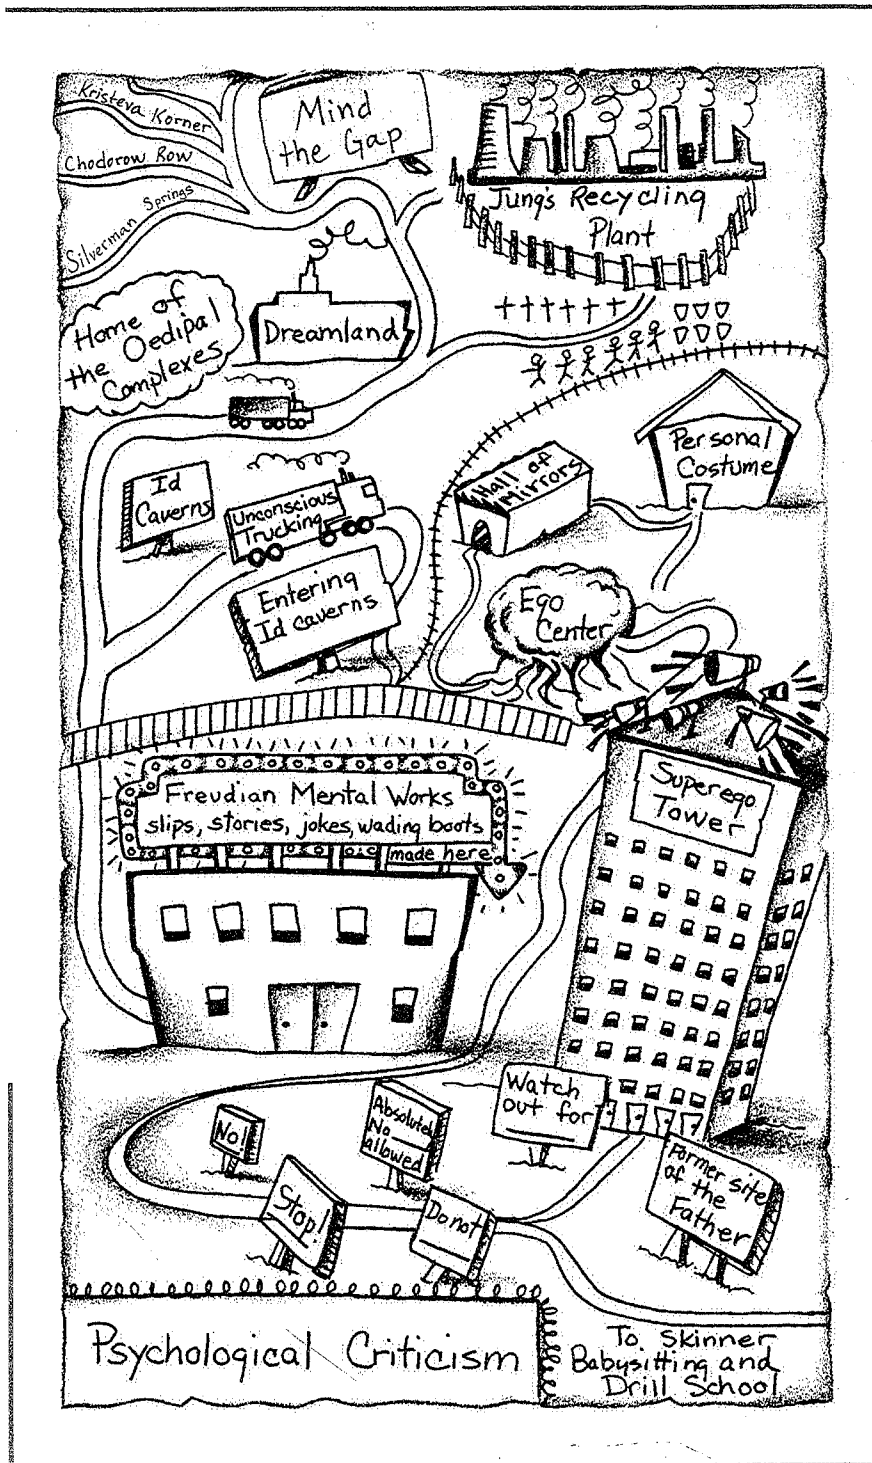 Kristeva Korner
Chodorow Row
Silverman Springs
Mind
the Gap
Jung's Recycling
Plant
Home of
the Oedipal
Complexes
Dreamland
Personal
Costume
Hall of
Mirrors
Id
Caverns
Unconscious
Trucking
Entering
Id caverns
Ego
Center
Freudian Mental Works
slips, stories, jokes, wading boots
made here
Superego
Tower
Watch
out for
Absolutely
No
allowed
No!
Former site
of the
Father
Stop!
Do not
Psychological Criticism
To Skinner
Babysitting and
Drill School